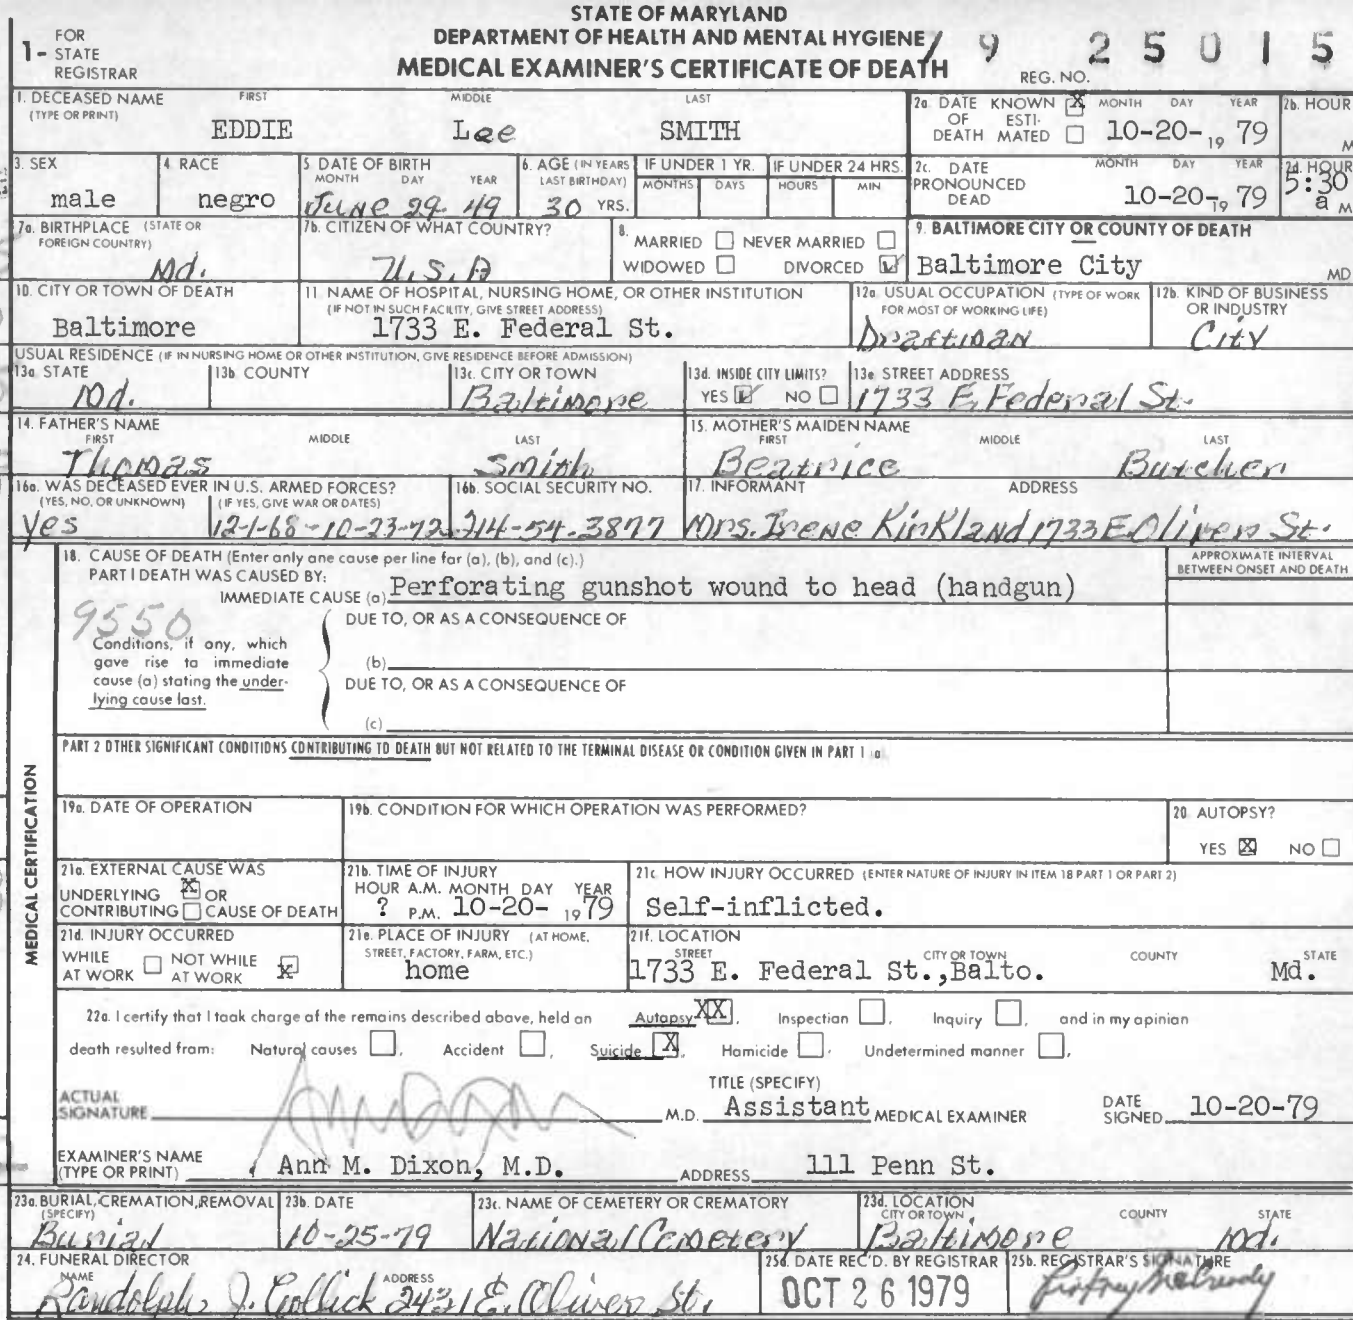 STATE OF MARYLAND
DEPARTMENT OF HEALTH AND MENTAL HYGIENE
MEDICAL EXAMINER'S CERTIFICATE OF DEATH
1- FOR STATE REGISTRAR
79 25015
REG. NO.
1. DECEASED NAME (TYPE OR PRINT) FIRST MIDDLE LAST
EDDIE Lee SMITH
2a. DATE OF DEATH KNOWN X ESTIMATED MONTH DAY YEAR
10-20-1979
2b. HOUR M
3. SEX
male
4. RACE
negro
5. DATE OF BIRTH MONTH DAY YEAR
June 29 49
6. AGE (IN YEARS LAST BIRTHDAY)
30 YRS.
IF UNDER 1 YR. MONTHS DAYS
IF UNDER 24 HRS. HOURS MIN
2c. DATE PRONOUNCED DEAD MONTH DAY YEAR
10-20-1979
2d. HOUR
5:30 a M
7a. BIRTHPLACE (STATE OR FOREIGN COUNTRY)
Md.
7b. CITIZEN OF WHAT COUNTRY?
U.S.A
8. MARRIED NEVER MARRIED
WIDOWED DIVORCED
9. BALTIMORE CITY OR COUNTY OF DEATH
Baltimore City MD
10. CITY OR TOWN OF DEATH
Baltimore
11. NAME OF HOSPITAL, NURSING HOME, OR OTHER INSTITUTION
(IF NOT IN SUCH FACILITY, GIVE STREET ADDRESS)
1733 E. Federal St.
12a. USUAL OCCUPATION (TYPE OF WORK FOR MOST OF WORKING LIFE)
Draftman
12b. KIND OF BUSINESS OR INDUSTRY
City
USUAL RESIDENCE (IF IN NURSING HOME OR OTHER INSTITUTION, GIVE RESIDENCE BEFORE ADMISSION)
13a STATE
Md.
13b. COUNTY
13c. CITY OR TOWN
Baltimore
13d. INSIDE CITY LIMITS?
YES NO
13e STREET ADDRESS
1733 E. Federal St.
14. FATHER'S NAME FIRST MIDDLE LAST
Thomas Smith
15. MOTHER'S MAIDEN NAME FIRST MIDDLE LAST
Beatrice Butcher
16a. WAS DECEASED EVER IN U.S. ARMED FORCES?
(YES, NO, OR UNKNOWN) (IF YES, GIVE WAR OR DATES)
Yes 12-1-68-10-23-72
16b. SOCIAL SECURITY NO.
214-54-3877
17. INFORMANT ADDRESS
Mrs. Irene Kirkland 1733 E Oliver St.
MEDICAL CERTIFICATION
18. CAUSE OF DEATH (Enter only one cause per line for (a), (b), and (c).)
PART I DEATH WAS CAUSED BY:
IMMEDIATE CAUSE (a) Perforating gunshot wound to head (handgun)
APPROXIMATE INTERVAL BETWEEN ONSET AND DEATH
9550
Conditions, if any, which gave rise to immediate cause (a) stating the underlying cause last.
DUE TO, OR AS A CONSEQUENCE OF
(b)
DUE TO, OR AS A CONSEQUENCE OF
(c)
PART 2 OTHER SIGNIFICANT CONDITIONS CONTRIBUTING TO DEATH BUT NOT RELATED TO THE TERMINAL DISEASE OR CONDITION GIVEN IN PART 1 (a).
19a. DATE OF OPERATION
19b. CONDITION FOR WHICH OPERATION WAS PERFORMED?
20 AUTOPSY?
YES X NO
21a. EXTERNAL CAUSE WAS
UNDERLYING X OR
CONTRIBUTING CAUSE OF DEATH
21b. TIME OF INJURY
HOUR A.M. MONTH DAY YEAR
? P.M. 10-20-1979
21c. HOW INJURY OCCURRED (ENTER NATURE OF INJURY IN ITEM 18 PART 1 OR PART 2)
Self-inflicted.
21d. INJURY OCCURRED
WHILE AT WORK NOT WHILE AT WORK X
21e. PLACE OF INJURY (AT HOME, STREET, FACTORY, FARM, ETC.)
home
21f. LOCATION
STREET CITY OR TOWN COUNTY STATE
1733 E. Federal St.,Balto. Md.
22a. I certify that I took charge of the remains described above, held an Autopsy XX, Inspection, Inquiry, and in my opinion
death resulted from: Natural causes, Accident, Suicide X, Homicide, Undetermined manner,
ACTUAL SIGNATURE M.D.
TITLE (SPECIFY)
Assistant MEDICAL EXAMINER
DATE SIGNED 10-20-79
EXAMINER'S NAME (TYPE OR PRINT) Ann M. Dixon, M.D.
ADDRESS 111 Penn St.
23a. BURIAL, CREMATION, REMOVAL (SPECIFY)
Burial
23b. DATE
10-25-79
23c. NAME OF CEMETERY OR CREMATORY
National Cemetery
23d. LOCATION
CITY OR TOWN COUNTY STATE
Baltimore Md.
24. FUNERAL DIRECTOR
NAME ADDRESS
Randolph J. Collick 2431 E. Oliver St.
25a. DATE REC'D. BY REGISTRAR
OCT 26 1979
25b. REGISTRAR'S SIGNATURE